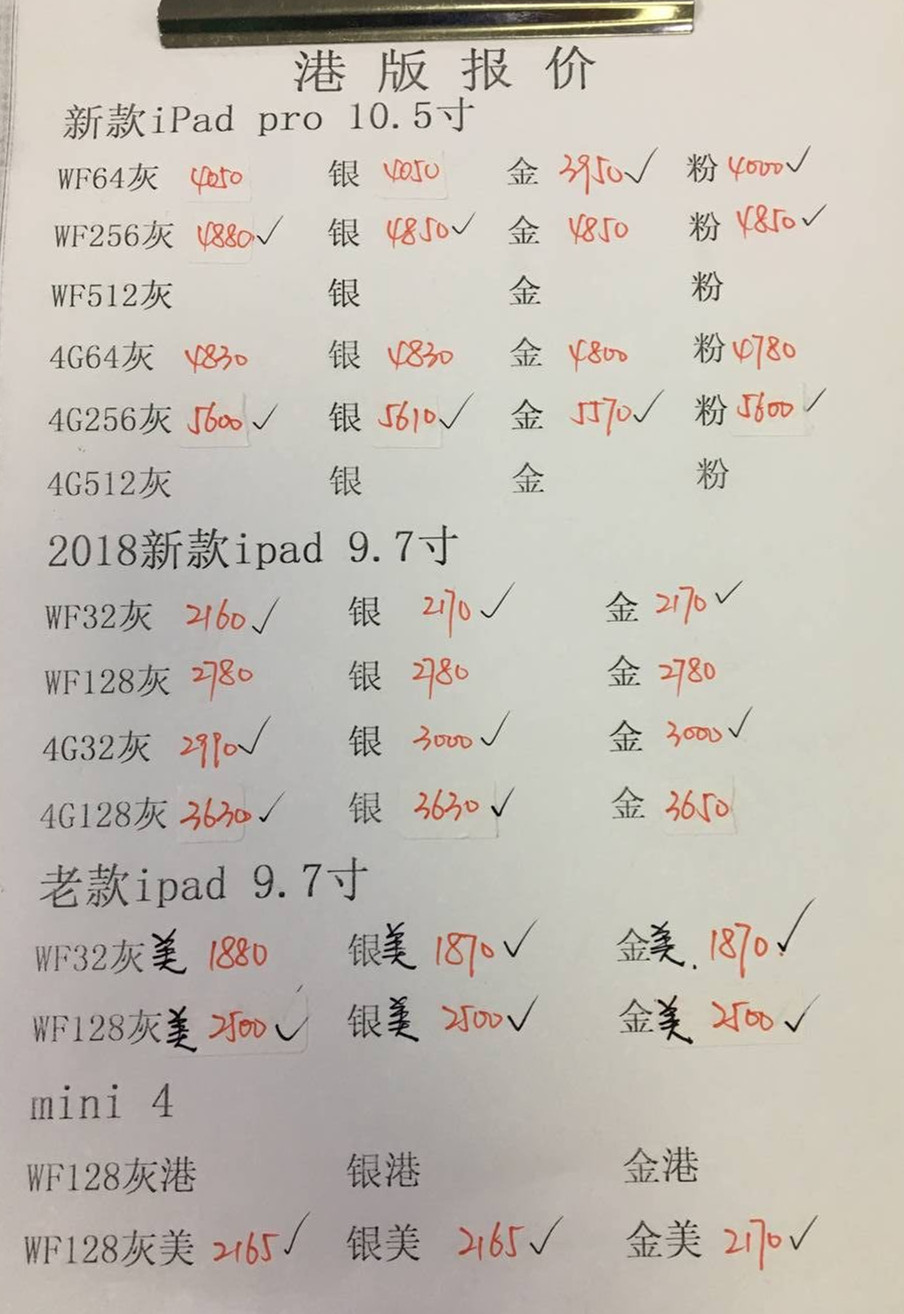 港版报价
新款iPad pro 10.5寸
WF64灰 4050 银 4050 金 3950✓ 粉 4000✓
WF256灰 4880✓ 银 4850✓ 金 4850 粉 4850✓
WF512灰 银 金 粉
4G64灰 4830 银 4830 金 4800 粉 4780
4G256灰 5600✓ 银 5610✓ 金 5570✓ 粉 5600✓
4G512灰 银 金 粉
2018新款ipad 9.7寸
WF32灰 2160✓ 银 2170✓ 金 2170✓
WF128灰 2780 银 2780 金 2780
4G32灰 2990✓ 银 3000✓ 金 3000✓
4G128灰 3630✓ 银 3630✓ 金 3650
老款ipad 9.7寸
WF32灰美 1880 银美 1870✓ 金美. 1870✓
WF128灰美 2500✓ 银美 2500✓ 金美 2500✓
mini 4
WF128灰港 银港 金港
WF128灰美 2165✓ 银美 2165✓ 金美 2170✓